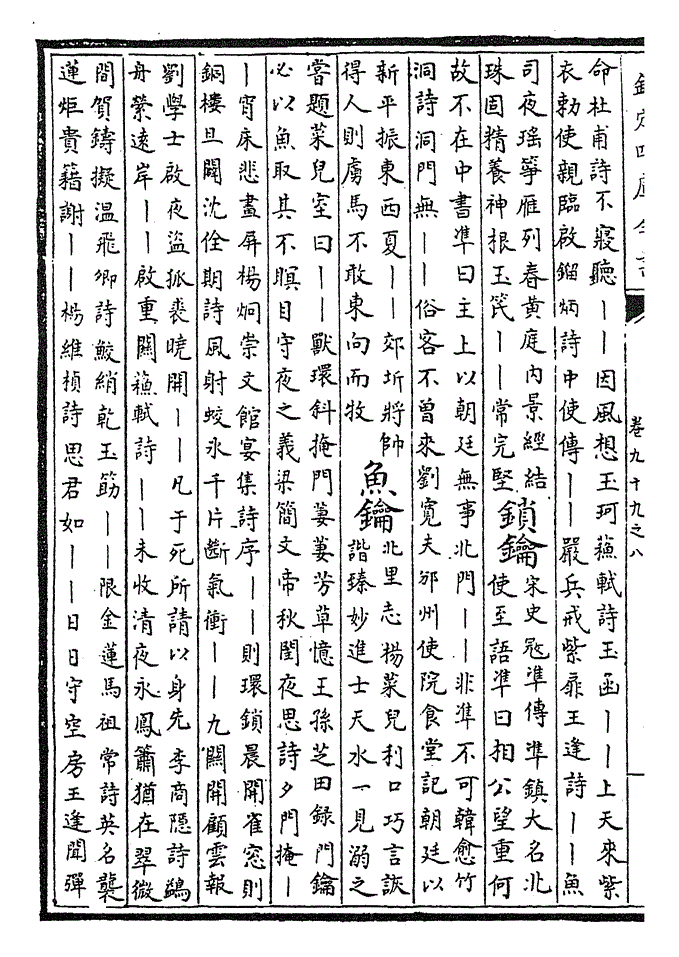 欽定四庫全書
卷九十九之八
命杜甫詩不寢聽——因風想玉珂蘇軾詩玉函——上天來紫
衣勅使親臨啟鎦炳詩中使傳——嚴兵戒紫扉王逢詩——魚
司夜瑶箏雁列春黄庭内景經結
珠固精養神根玉笢——常完堅
鎖鑰
宋史寇凖傳凖鎮大名北
使至語凖曰相公望重何
故不在中書凖曰主上以朝廷無事北門——非凖不可韓愈竹
洞詩洞門無——俗客不曾來劉寬夫邠州使院食堂記朝廷以
新平振東西夏——郊圻將帥
得人則虜馬不敢東向而牧
魚鑰
北里志楊萊兒利口巧言詼
諧臻妙進士天水一見溺之
嘗題萊兒室曰——獸環斜掩門萋萋芳草憶王孫芝田録門鑰
必以魚取其不瞑目守夜之義梁簡文帝秋閨夜思詩夕門掩—
—宵床悲畫屏楊炯崇文館宴集詩序——則環鎖晨開雀窓則
銅樓旦闢沈佺期詩風射蛟氷千片斷氣衝——九關開顧雲報
劉學士啟夜盜狐裘曉開——凡于死所請以身先李商隱詩鷁
舟縈遠岸——啟重關蘇軾詩——未收清夜永鳳簫猶在翠微
間賀鑄擬温飛卿詩鮫綃乾玉筯——限金蓮馬祖常詩英名襲
蓮炬貴籍謝——楊維楨詩思君如——日日守空房王逢聞彈